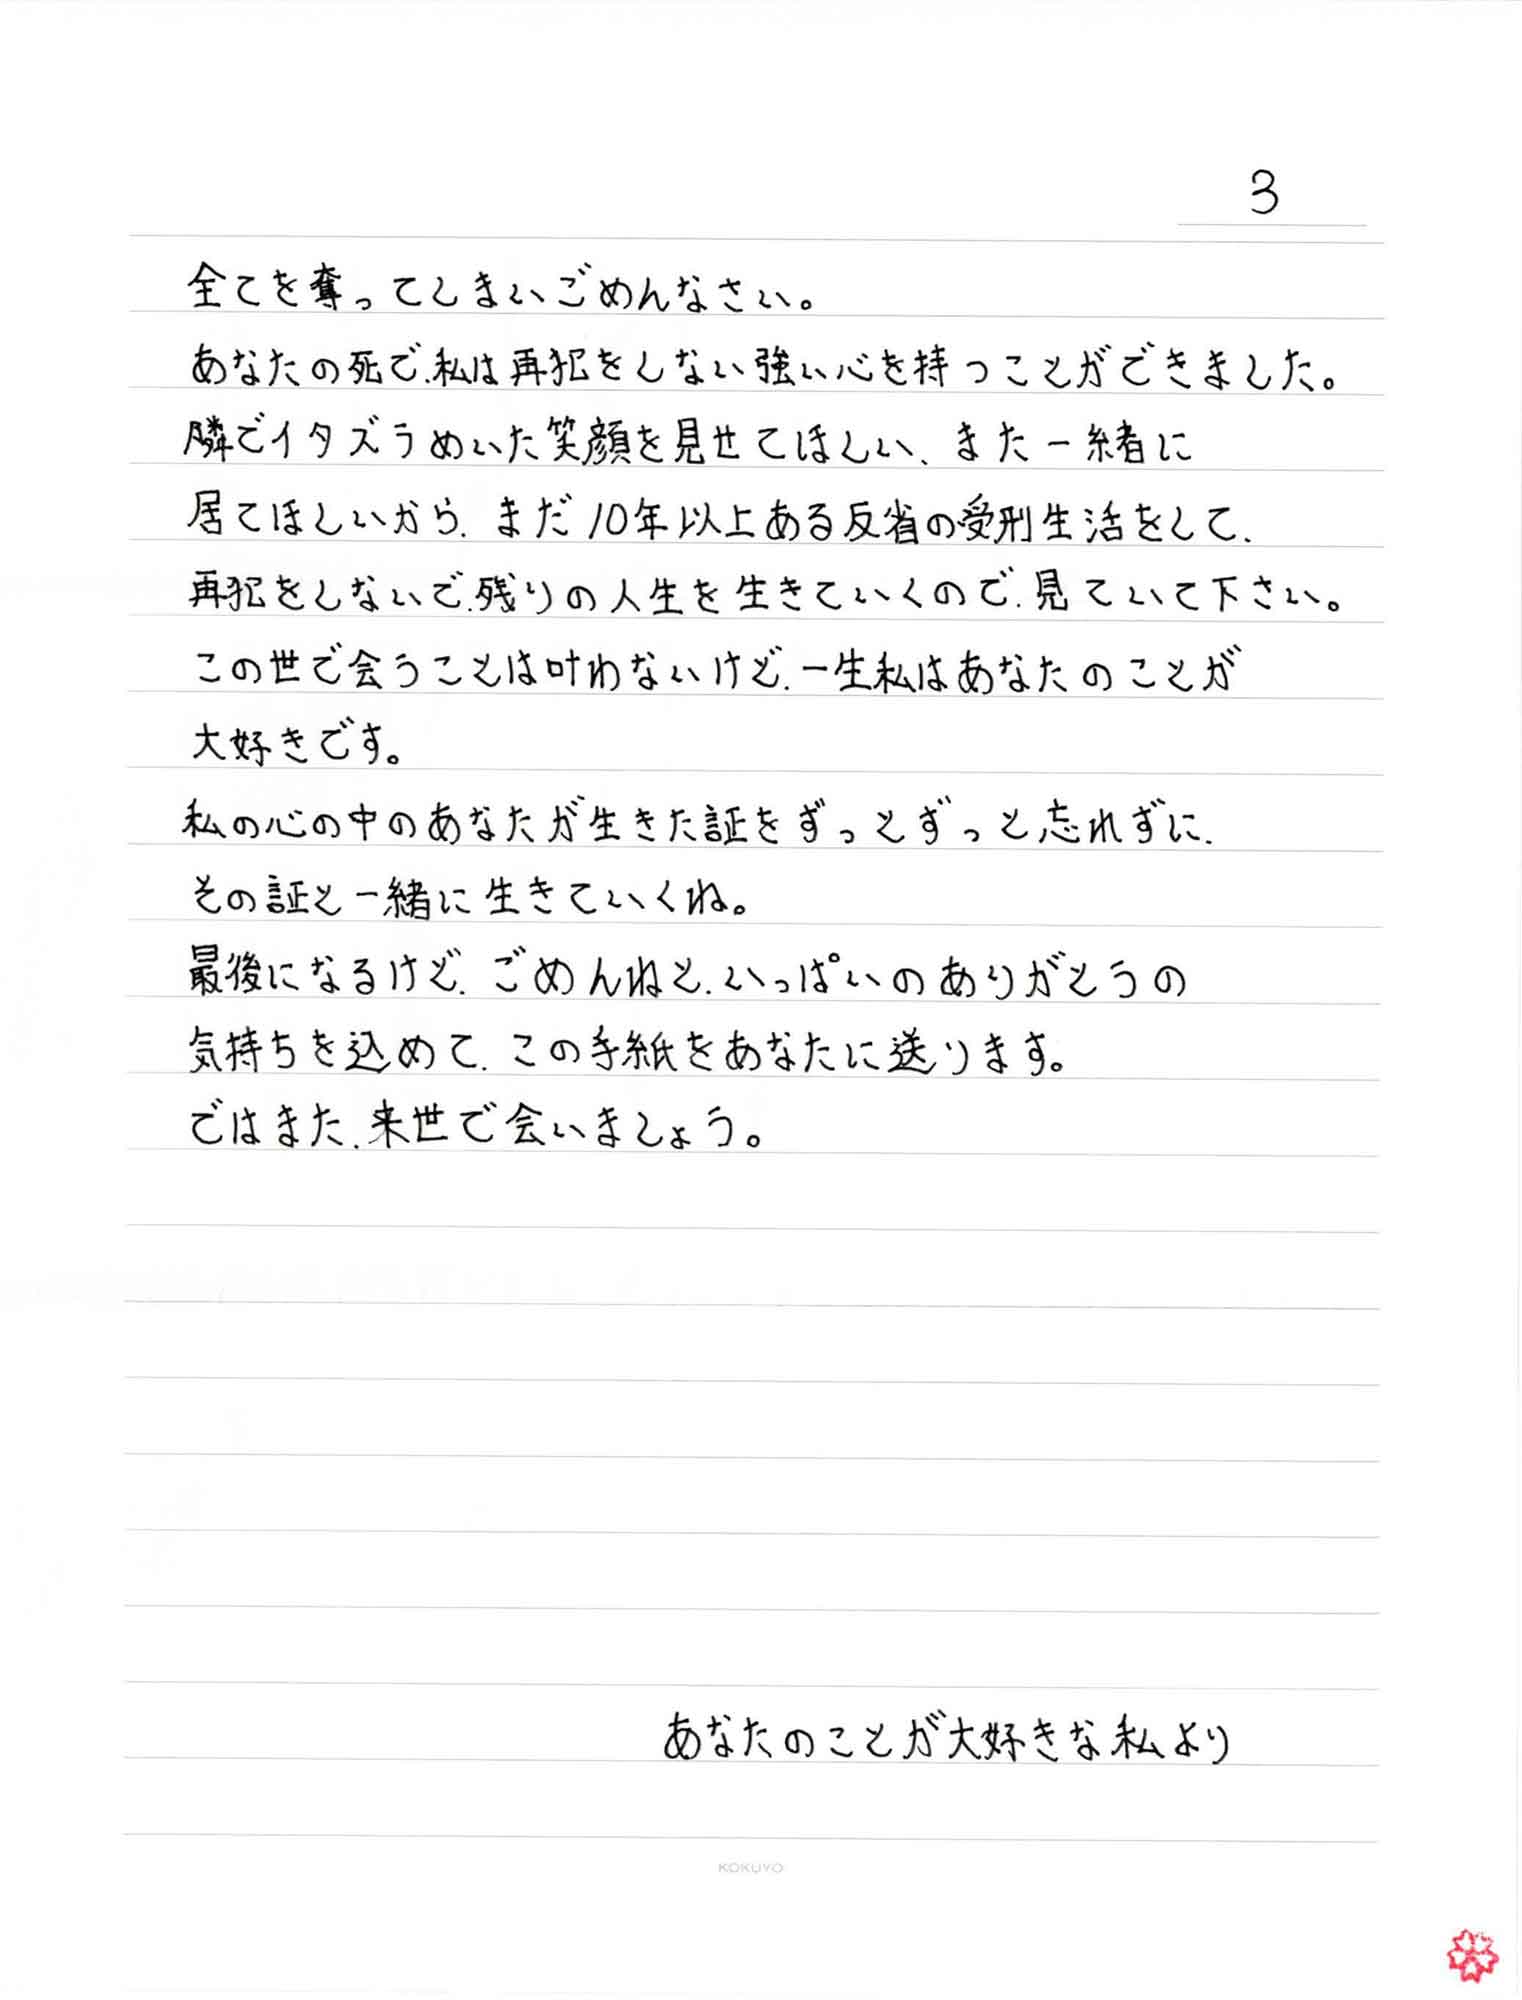 3
全てを奪ってしまいごめんなさい。
あなたの死で、私は再犯をしない強い心を持つことができました。
隣でイタズラめいた笑顔を見せてほしい、また一緒に
居てほしいから、まだ10年以上ある反省の受刑生活をして、
再犯をしないで、残りの人生を生きていくので、見ていて下さい。
この世で会うことは叶わないけど、一生私はあなたのことが
大好きです。
私の心の中のあなたが生きた証をずっとずっと忘れずに、
その証と一緒に生きていくね。
最後になるけど、ごめんねと、いっぱいのありがとうの
気持ちを込めて、この手紙をあなたに送ります。
ではまた、来世で会いましょう。
あなたのことが大好きな私より
KOKUYO